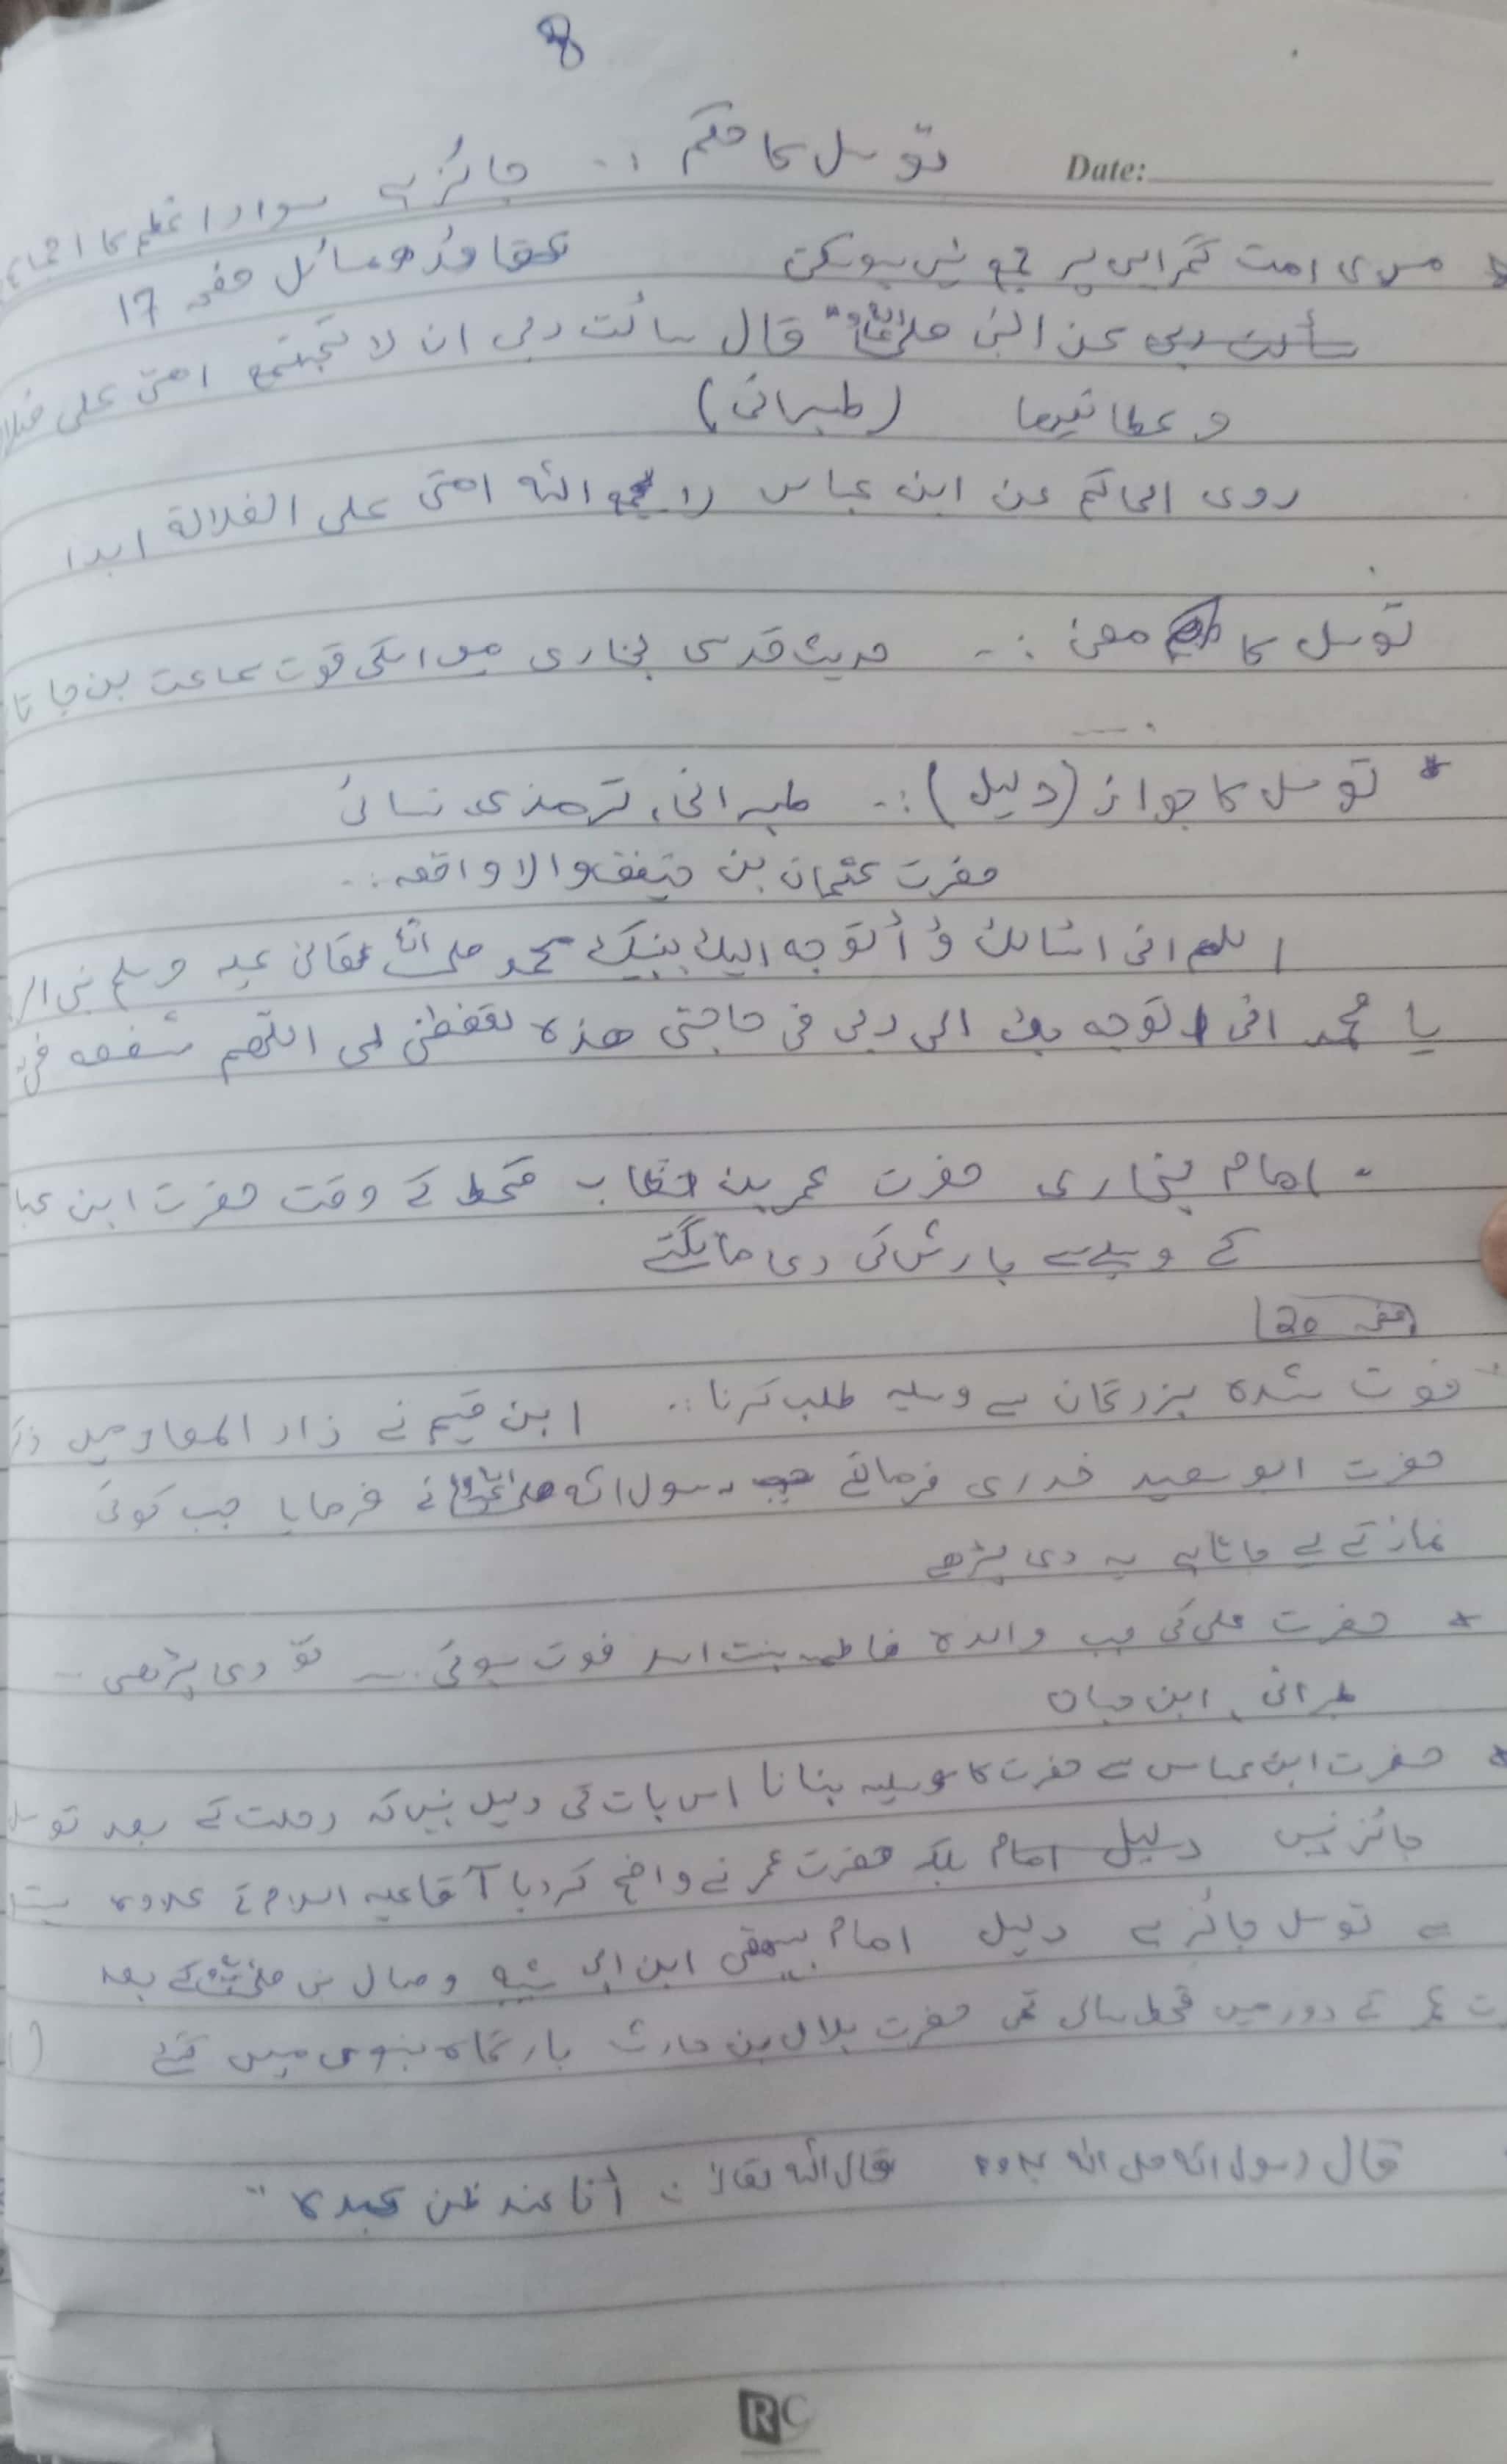 8
Date:
توسل کا حکم :. جائز ہے سواد اعظم کا اجماع
* میری امت گمراہی پر جمع نہیں ہوسکتی عقائد و مسائل صفحہ 17
عن النبی صلی اللہ قال سائت ربی ان لا تجتمع امتی علی
و عطانیھا (طبرانی)
روی الحاکم عن ابن عباس لا یجمع اللہ امتی علی الضلالة ابدا
توسل کا معنی :۔ حدیث قدسی بخاری میں اسکی قوت سماعت بن جاتا
* توسل کا جواز (دلیل) :۔ طبرانی، ترمذی نسائی
حضرت عثمان بن حنیف والا واقعہ :.
اللھم انی اسئالک و أتوجہ الیک بنبیک محمد صلی اللہ تعالی علیہ وسلم نبی
یا محمد انی اتوجہ بک الی ربی فی حاجتی ھذہ لتقضی لی اللھم شفعہ فی
- امام بخاری حضرت عمر بن خطاب قحط کے وقت حضرت ابن عبا
کے وسیلے سے بارش کی دعا مانگتے
صفحہ 20
فوت شدہ بزرگان سے وسیلہ طلب کرنا :. ابن قیم نے زاد المعاد میں ذکر
حضرت ابو سعید خدری فرماتے رسول اللہ صلی اللہ نے فرمایا جب کوئی
نماز کے لیے جاتا ہے یہ دعا پڑھے
* حضرت علی کی جب والدہ فاطمہ بنت اسد فوت ہوئی ... تو دعا پڑھی ..
طبرانی، ابن حبان
* حضرت ابن عباس سے حضرت کا وسیلہ بنانا اس بات کی دلیل نہیں کہ رحلت کے بعد توسل
جائز نہیں دلیل امام بلکہ حضرت عمر نے واضح کر دیا آقا علیہ السلام کے علاوہ
سے توسل جائز ہے دلیل امام بیہقی ابن ابی شیبہ وصال نبی صلی اللہ کے بعد
ت عمر کے دور میں قحط سالی تھی حضرت بلال بن حارث بارگاہ نبوی میں گئے
قال رسول اللہ صلی اللہ علیہ وسلم قال اللہ تعالیٰ : أنا عند ظن عبدہ "
RC